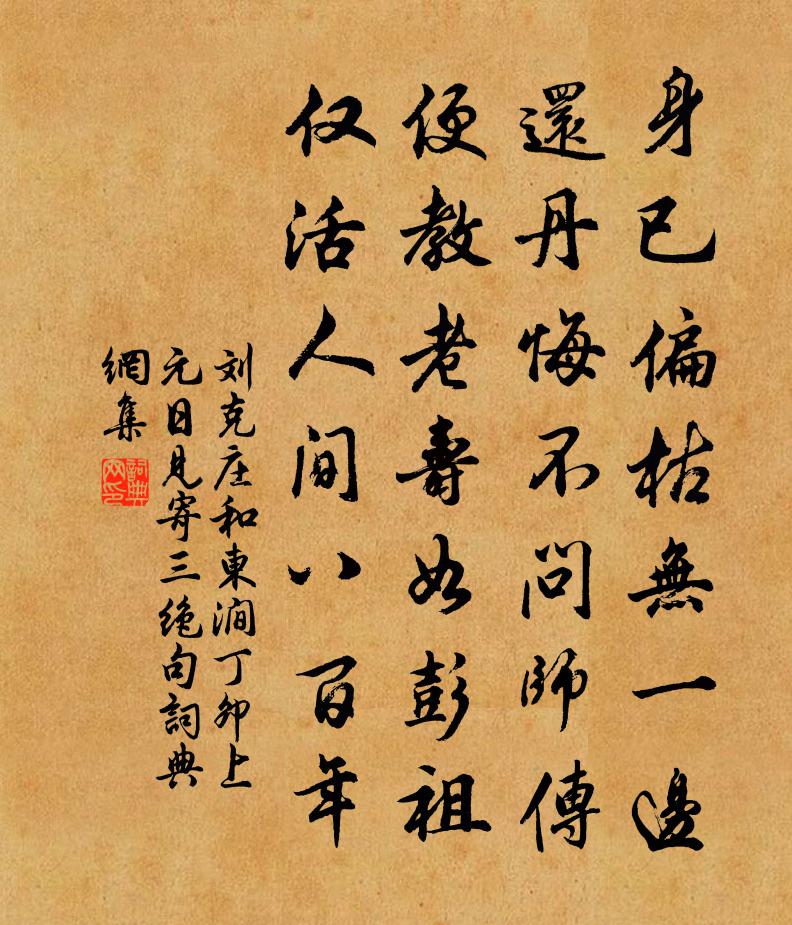 身已偏枯無一邊
還丹悔不問師傳
便教老壽如彭祖
仅活人间八百年
刘克庄和東澗丁卯上
元日見寄三绝句詞典
網集
詞典
网印